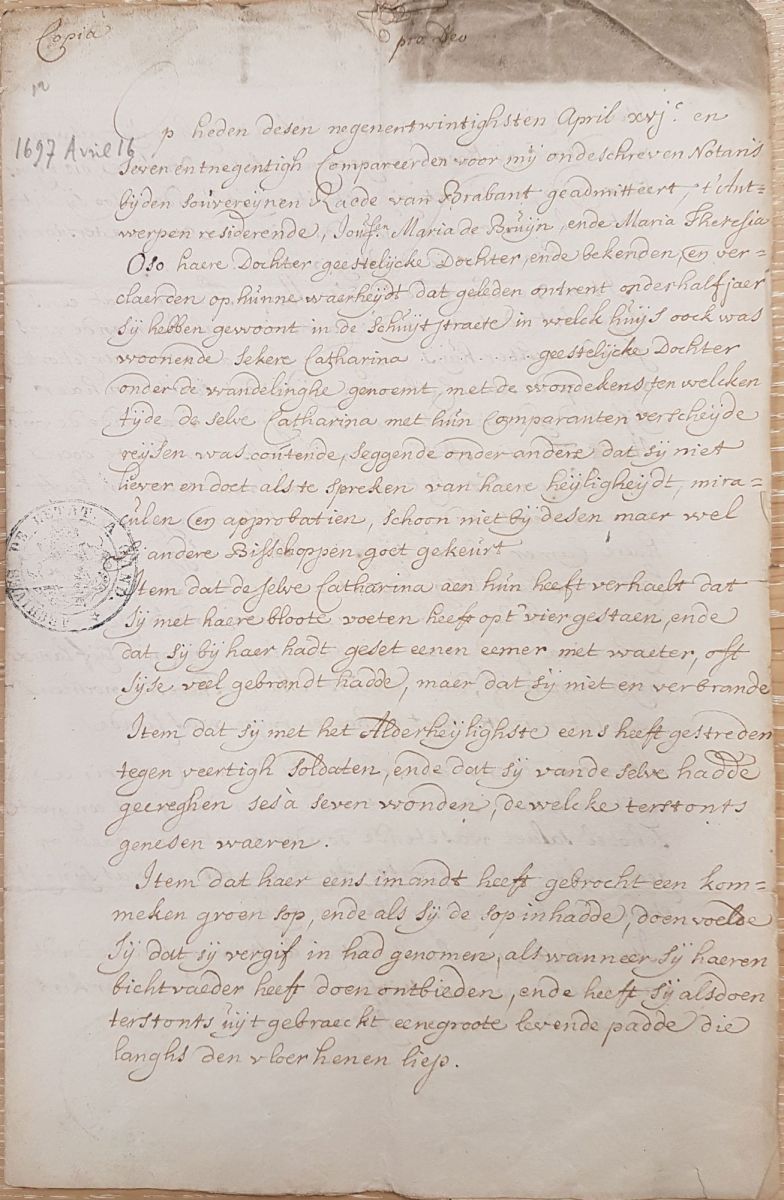 Copia
pro Deo
1697 Avril 16
Op heden desen negenentwintighsten April xvjc. en
seven entnegentigh Compareerden voor mij ondeschreven Notaris
bijden souvereijnen Raede van Brabant geadmitteert, t'Ant-
werpen residerende, Joufn. Maria de Bruijn, ende Maria Theresia
Oso haere Dochter geestelijcke Dochter, ende bekenden, en ver-
claerden op hunne waerheijdt dat geleden ontrent onderhalf jaer
sij hebben gewoont in de schuijtstraete in welck huijs oock was
woonende sekere Catharina . . . . . . . . geestelijcke Dochter
onder de wandelinghe genoemt, met de wondekens, ten welcken
tijde de selve Catharina met hun Comparanten verscheijde
reijsen was coutende, seggende onder andere dat sij niet
liever en doet als te spreken van haere heijligheijdt, mira-
culen en approbatien, schoon niet bij desen maer wel
andere Bisschoppen goet gekeurt
Item dat de selve Catharina aen hun heeft verhaelt dat
sij met haere bloote voeten heeft opt' vier gestaen, ende
dat sij bij haer hadt geset eenen eemer met waeter, oft
sijse veel gebrandt hadde, maer dat sij niet en verbrande
Item dat sij met het Alderheijlighste eens heeft gestreden
tegen veertigh soldaten, ende dat sij vande selve hadde
gecreghen ses à seven wonden, de welcke terstonts
genesen waeren.
Item dat haer eens imandt heeft gebrocht een kom-
meken groen sop, ende als sij de sop in hadde, doen voelde
sij dat sij vergif in had genomen, als wanneer sij haeren
bichtvaeder heeft doen ontbieden, ende heeft sij alsdoen
terstonts uijt gebraeckt eene groote levende padde die
langhs den vloer henen liep.
ARCHIVES DE L'ETAT A